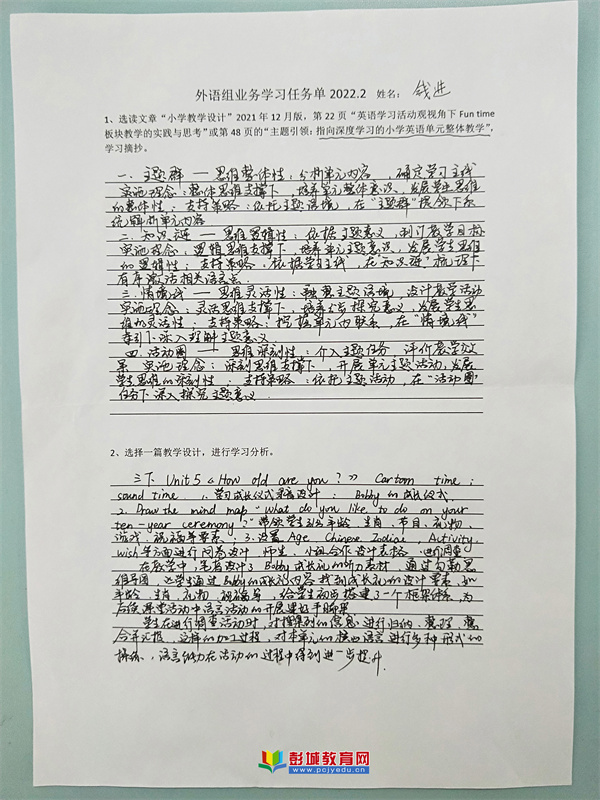 外语组业务学习任务单 2022.2 姓名：钱进
1、选读文章“小学教学设计”2021 年 12 月版，第 22 页“英语学习活动观视角下 Fun time
板块教学的实践与思考”或第 48 页的“主题引领：指向深度学习的小学英语单元整体教学”，
学习摘抄。
一、主题群 — 思维整体性：分析单元内容，确定学习主线
实施理念：整体思维支撑下，培养单元整体意识，发展学生思维
的整体性；支持策略：依托主题语境，在“主题群”提领下系
统解析单元内容
二、知识链 — 思维逻辑性：依据主题意义，制订教学目标
实施理念：逻辑思维支撑下，培养单元主题意识，发展学生思维
的逻辑性；支持策略：依据学习主线，在“知识链”梳理下
有序激活相关语言点
三、情境线 — 思维灵活性：融思主题语境，设计教学活动
实施理念：灵活思维支撑下，培养探究意义，发展学生思
维的灵活性；支持策略：挖掘单元内联系，在“情境线”
牵引下深入理解主题意义
四、活动圈 — 思维深刻性：介入主题任务，评价教学效
果 实施理念：深刻思维支撑下，开展单元主题活动，发展
学生思维的深刻性；支持策略：依托主题活动，在“活动圈”
任务下深入探究主题意义
2、选择一篇教学设计，进行学习分析。
三下 Unit 5 《How old are you？》 Cartoon time；
sound time. 1、学习成长仪式录音设计：Bobby 的成长仪式
2. Draw the mind map “What do you like to do on your
ten-year ceremony?” 带领学生对年龄、生肖、节目、礼物、
游戏、祝福等要素；3. 设置 Age, Chinese Zodiac, Activity,
wish 等方面进行问卷设计 师生、小组合作设计表格，进行调查
在教学中，先设计了 Bobby 成长礼的听力素材，通过勾勒思
维导图，让学生通过 Bobby 的成长礼内容找到成长礼的设计要素，如
年龄、生肖、礼物、祝福等，给学生初步搭建了一个框架体系，为
后续课堂活动中语言活动的开展建立了脚手架
学生在进行调查活动时，对搜集到的信息进行归纳、整理、整
合并汇报，这样的加工过程，对本单元的核心语言进行多种形式的
操练，语言能力在活动的过程中得到进一步提升.
彭城教育网
www.pcjyedu.cn